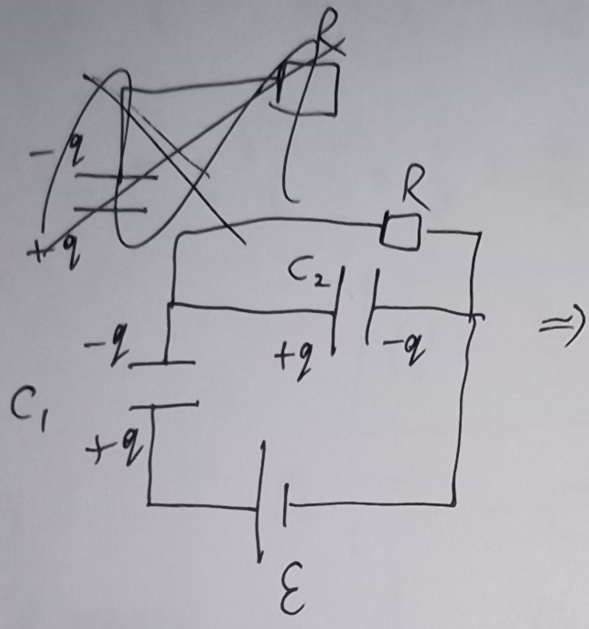 R
-q
+q
R
C₂
-q
+q -q
⇒
C₁
+q
ε